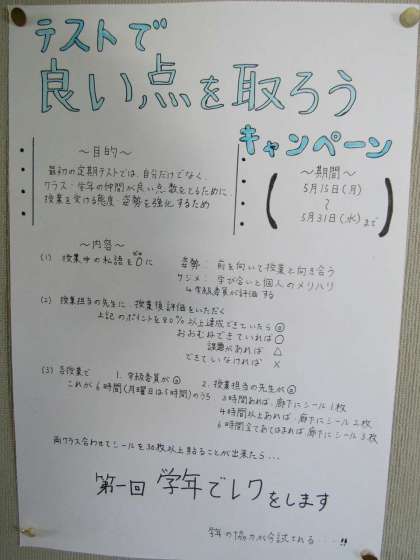 テストで
良い点を取ろう
キャンペーン
～目的～
最初の定期テストでは、自分だけでなく、
クラス・学年の仲間が良い点数をとるために、
授業を受ける態度・姿勢を強化するため
～期間～
5月15日(月)
～
5月31日(水)まで
～内容～
(1) 授業中の私語を0に
姿勢：前を向いて授業と向き合う
ケジメ：学び合いと個人のメリハリ
学級委員が評価する
(2) 授業担当の先生に、授業後評価をいただく
上記のポイントを80%以上達成できていたら ◎
おおむねできていれば ○
課題があれば △
できていなければ ×
(3) 各授業で 1. 学級委員が◎ 2. 授業担当の先生が◎
これが6時間(月曜日は5時間)のうち 3時間あれば、廊下にシール1枚
4時間以上あれば、廊下にシール2枚
6時間全てあてはまれば、廊下にシール3枚
両クラス合わせてシールを30枚以上貼ることが出来たら…
第一回 学年でレクをします
学年の協力が今試される…!!